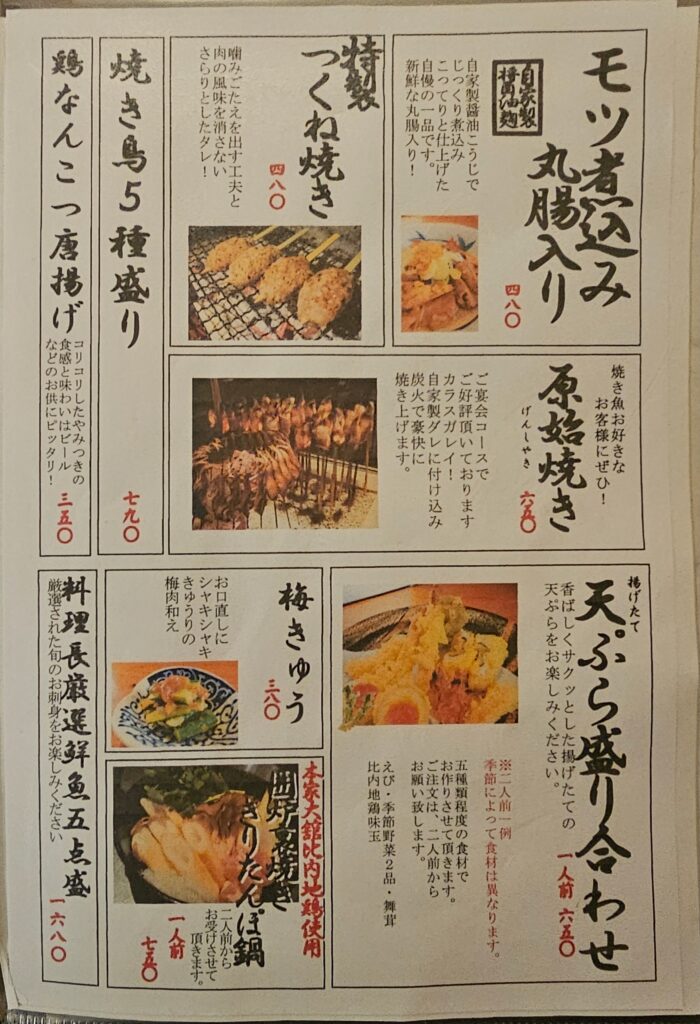 モツ煮込み
丸腸入り
自家製
醤油麹
自家製醤油こうじで
じっくり煮込み
こってりと仕上げた
自慢の一品です。
新鮮な丸腸入り！
四八〇
特製
つくね焼き
四八〇
噛みごたえを出す工夫と
肉の風味を消さない
さらりとしたタレ！
焼き鳥５種盛り
七九〇
鶏なんこつ唐揚げ
コリコリしたやみつきの
食感と味わいはビール
などのお供にピッタリ！
三五〇
焼き魚お好きな
お客様にぜひ！
原始焼き
げんしやき
六五〇
ご宴会コースで
ご好評頂いております
カラスガレイ！
自家製ダレに付け込み
炭火で豪快に
焼き上げます。
揚げたて
天ぷら盛り合わせ
一人前 六五〇
香ばしくサクッとした揚げたての
天ぷらをお楽しみください。
※二人前一例
季節によって食材は異なります。
五種類程度の食材で
お作りさせて頂きます。
ご注文は、二人前から
お願い致します。
えび・季節野菜２品・舞茸
比内地鶏味玉
梅きゅう
三八〇
お口直しに
シャキシャキ
きゅうりの
梅肉和え
本家大舘比内地鶏使用
囲炉裏焼き
きりたんぽ鍋
二人前から
お受けさせて
頂きます。
一人前
七五〇
料理長厳選鮮魚五点盛
厳選された旬のお刺身をお楽しみください
一六八〇